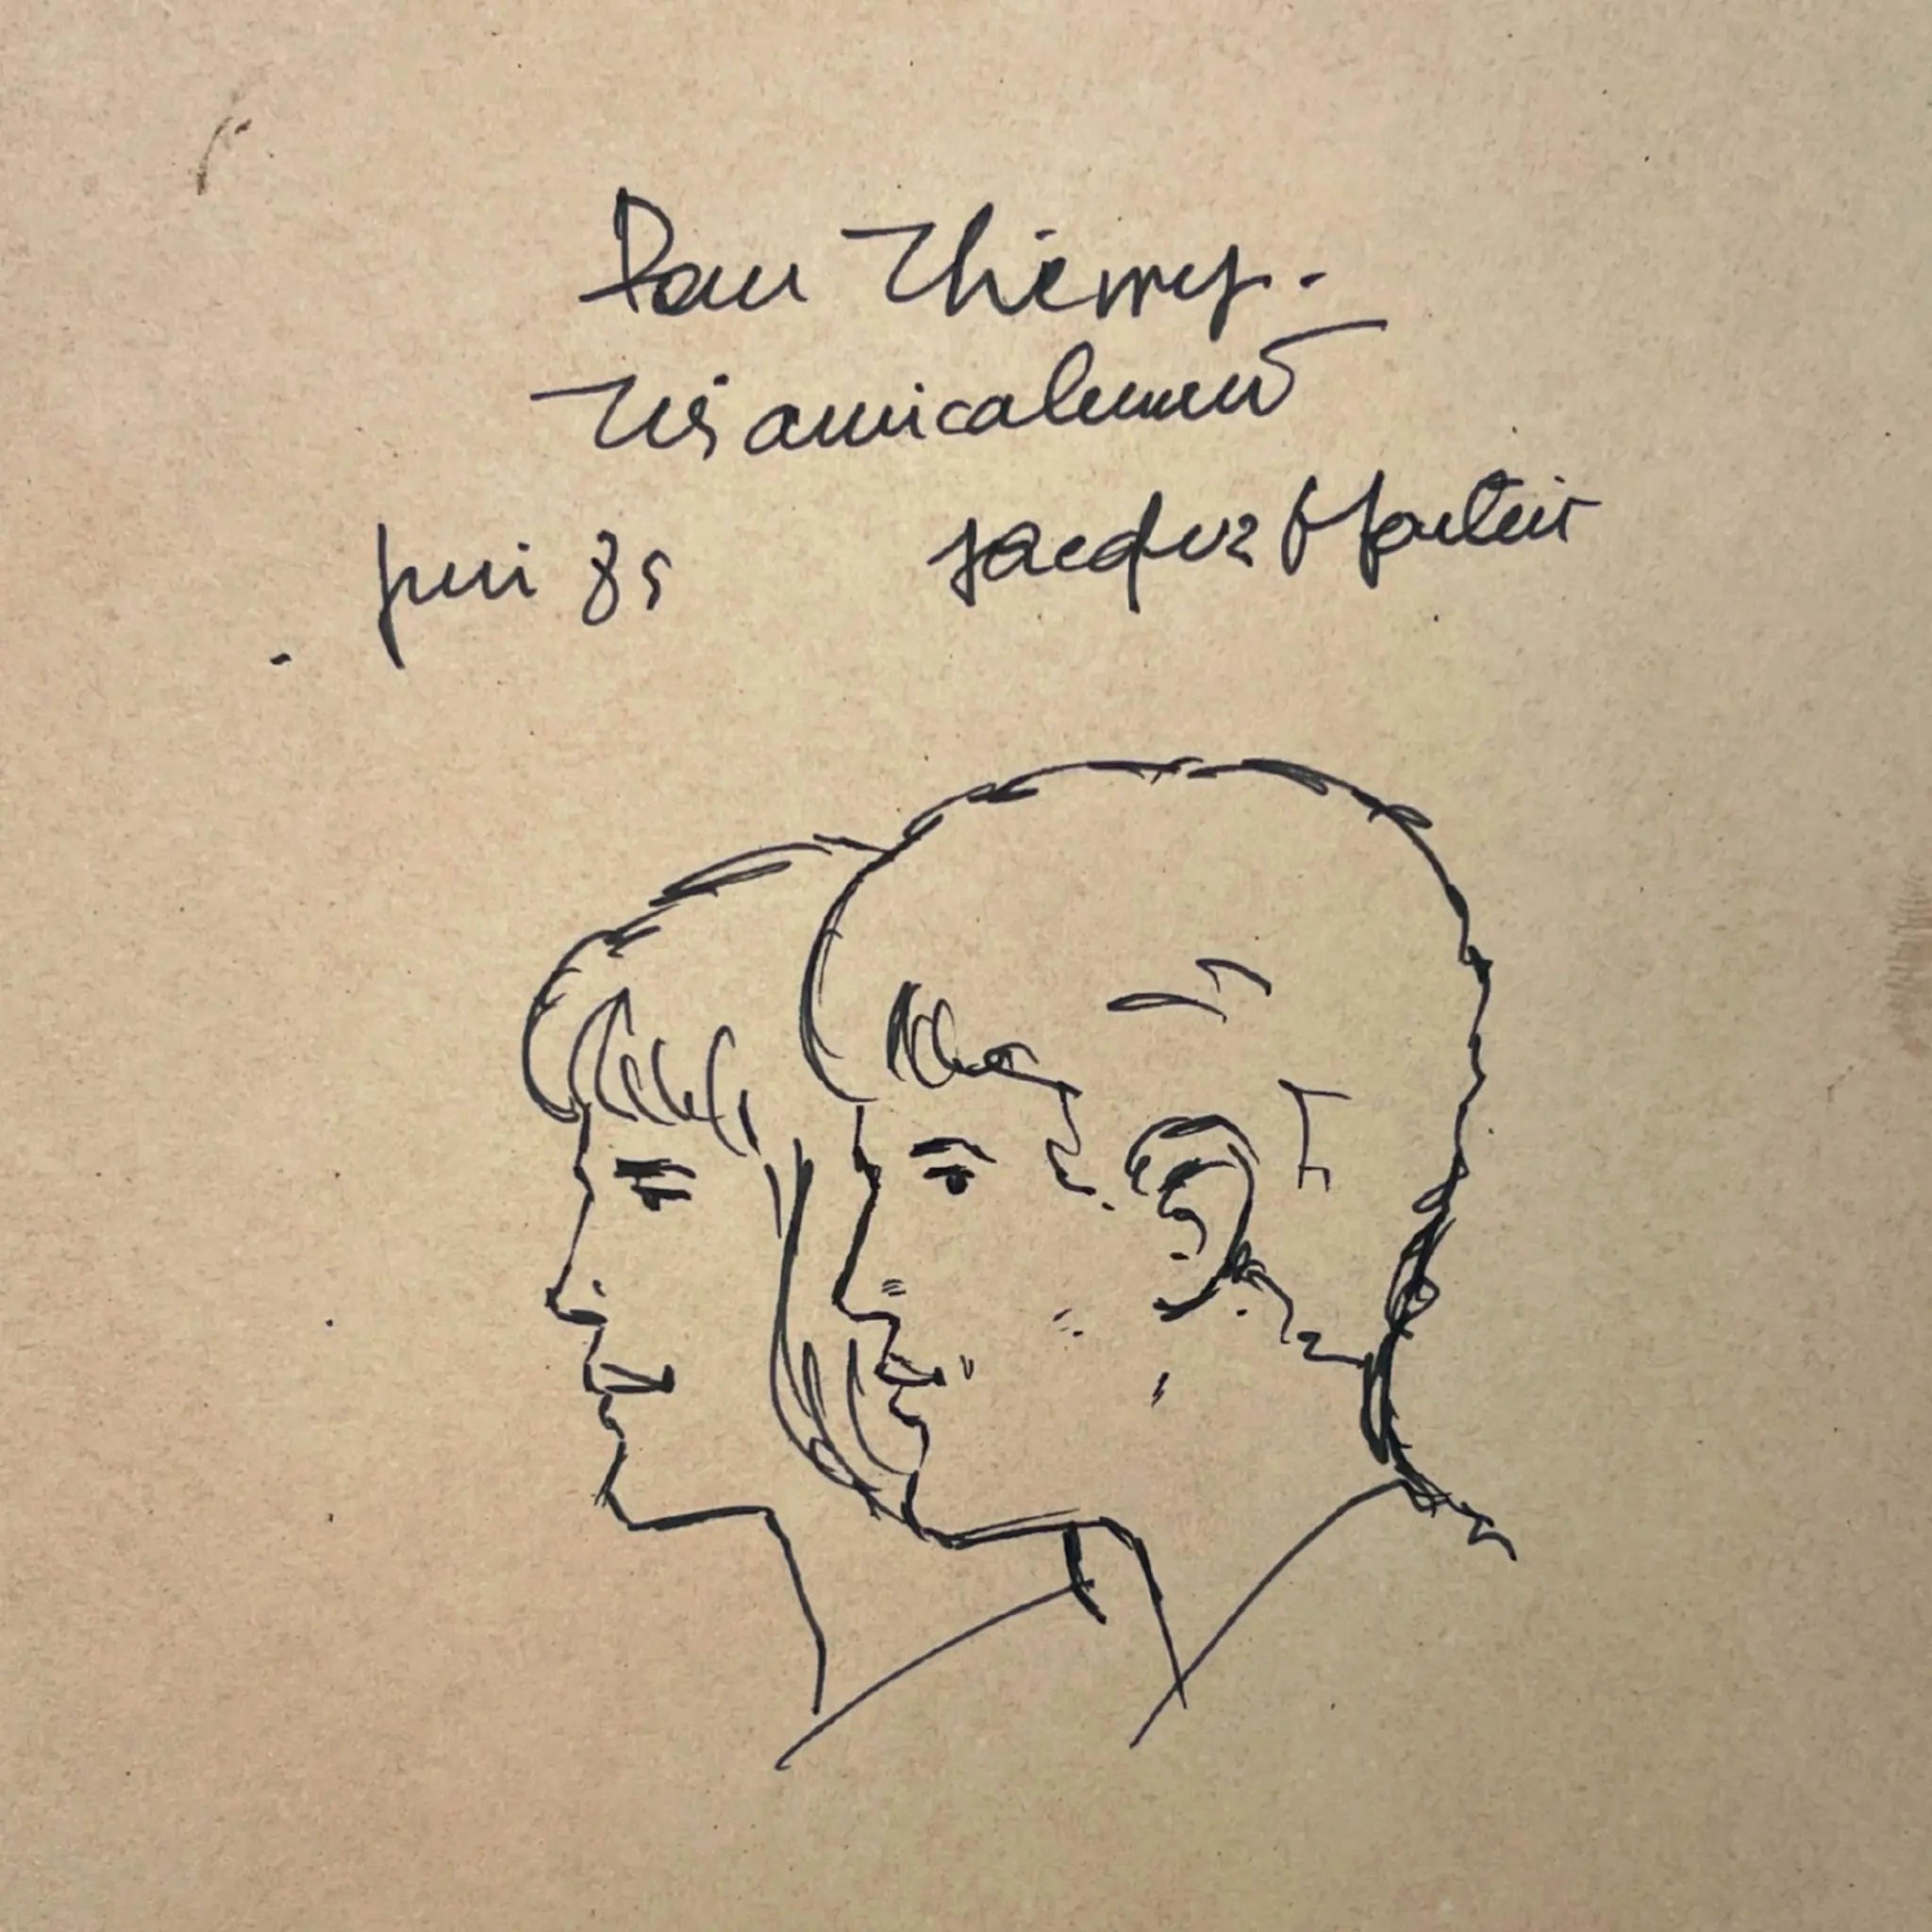 Pour Thierry.
Très amicalement
juin 85 Jacques Martin